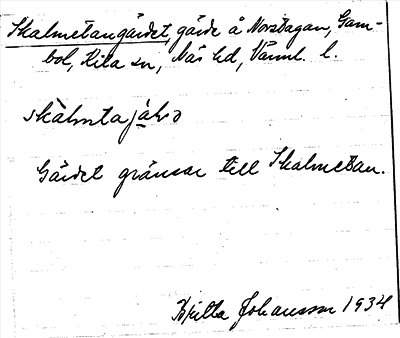 Skalmetangärdet, gärde å Norstagan, Gam-
bol, Kila sn, Näs hd, Värml. l.
skàlmtajäḷɔ
Gärdet gränsar till Skalmetan.
Britta Johansson 1934